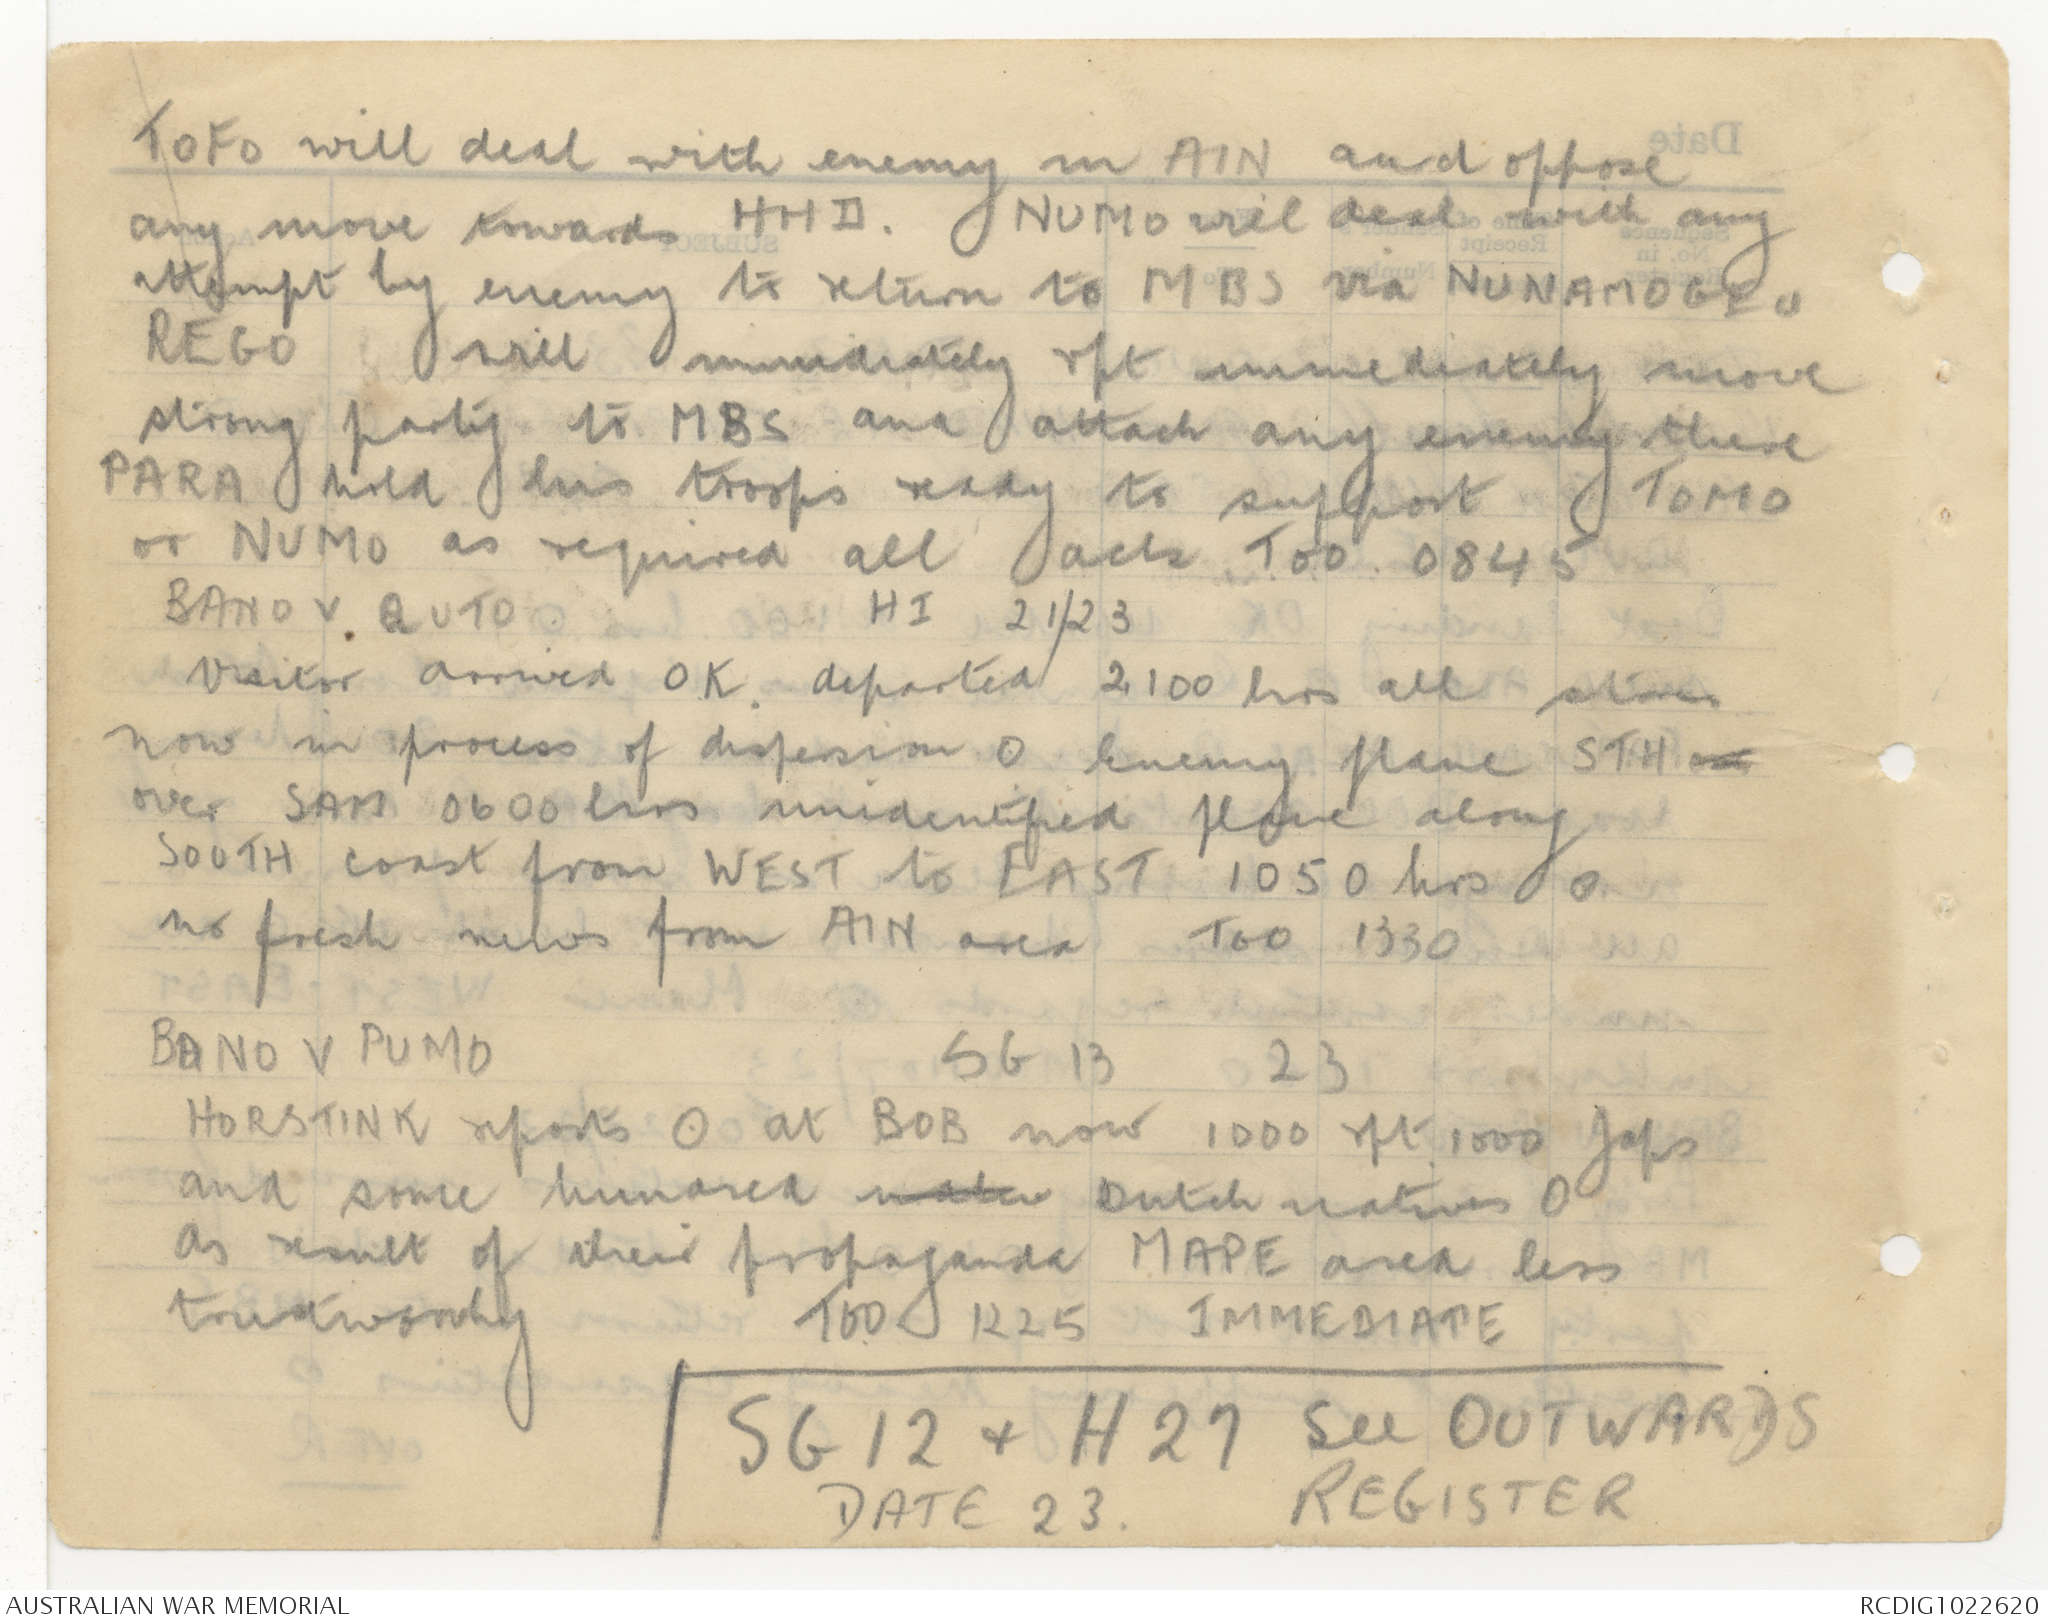 TOFO will deal with enemy in AIN and oppose
any move towards HHD. NUMO will deal with any
attempt by enemy to return to MBS via NUNAMOGEU
REGO will immediately rpt immediately move
strong party to MBS and attack any enemy there
PARA hold his troops ready to support TOMO
or NUMO as required all acts TOO. 0845
BANO V. QUTO HI 21/23
visitor arrived OK. departed 2100 hrs all stores
now in process of dispersion O Enemy plane STH
over SAM 0600 hrs unidentified plane along
SOUTH coast from WEST to EAST 1050 hrs O
no fresh news from AIN area TOO 1330
BANO V PUMO SG 13 23
HORSTINK reports O at BOB now 1000 rpt 1000 Japs
and some hundred Dutch natives O
As result of their propaganda MAPE area less
trustworthy TOO 1225 IMMEDIATE
SG 12 + H 27 See OUTWARDS
DATE 23. REGISTER
AUSTRALIAN WAR MEMORIAL RCDIG1022620